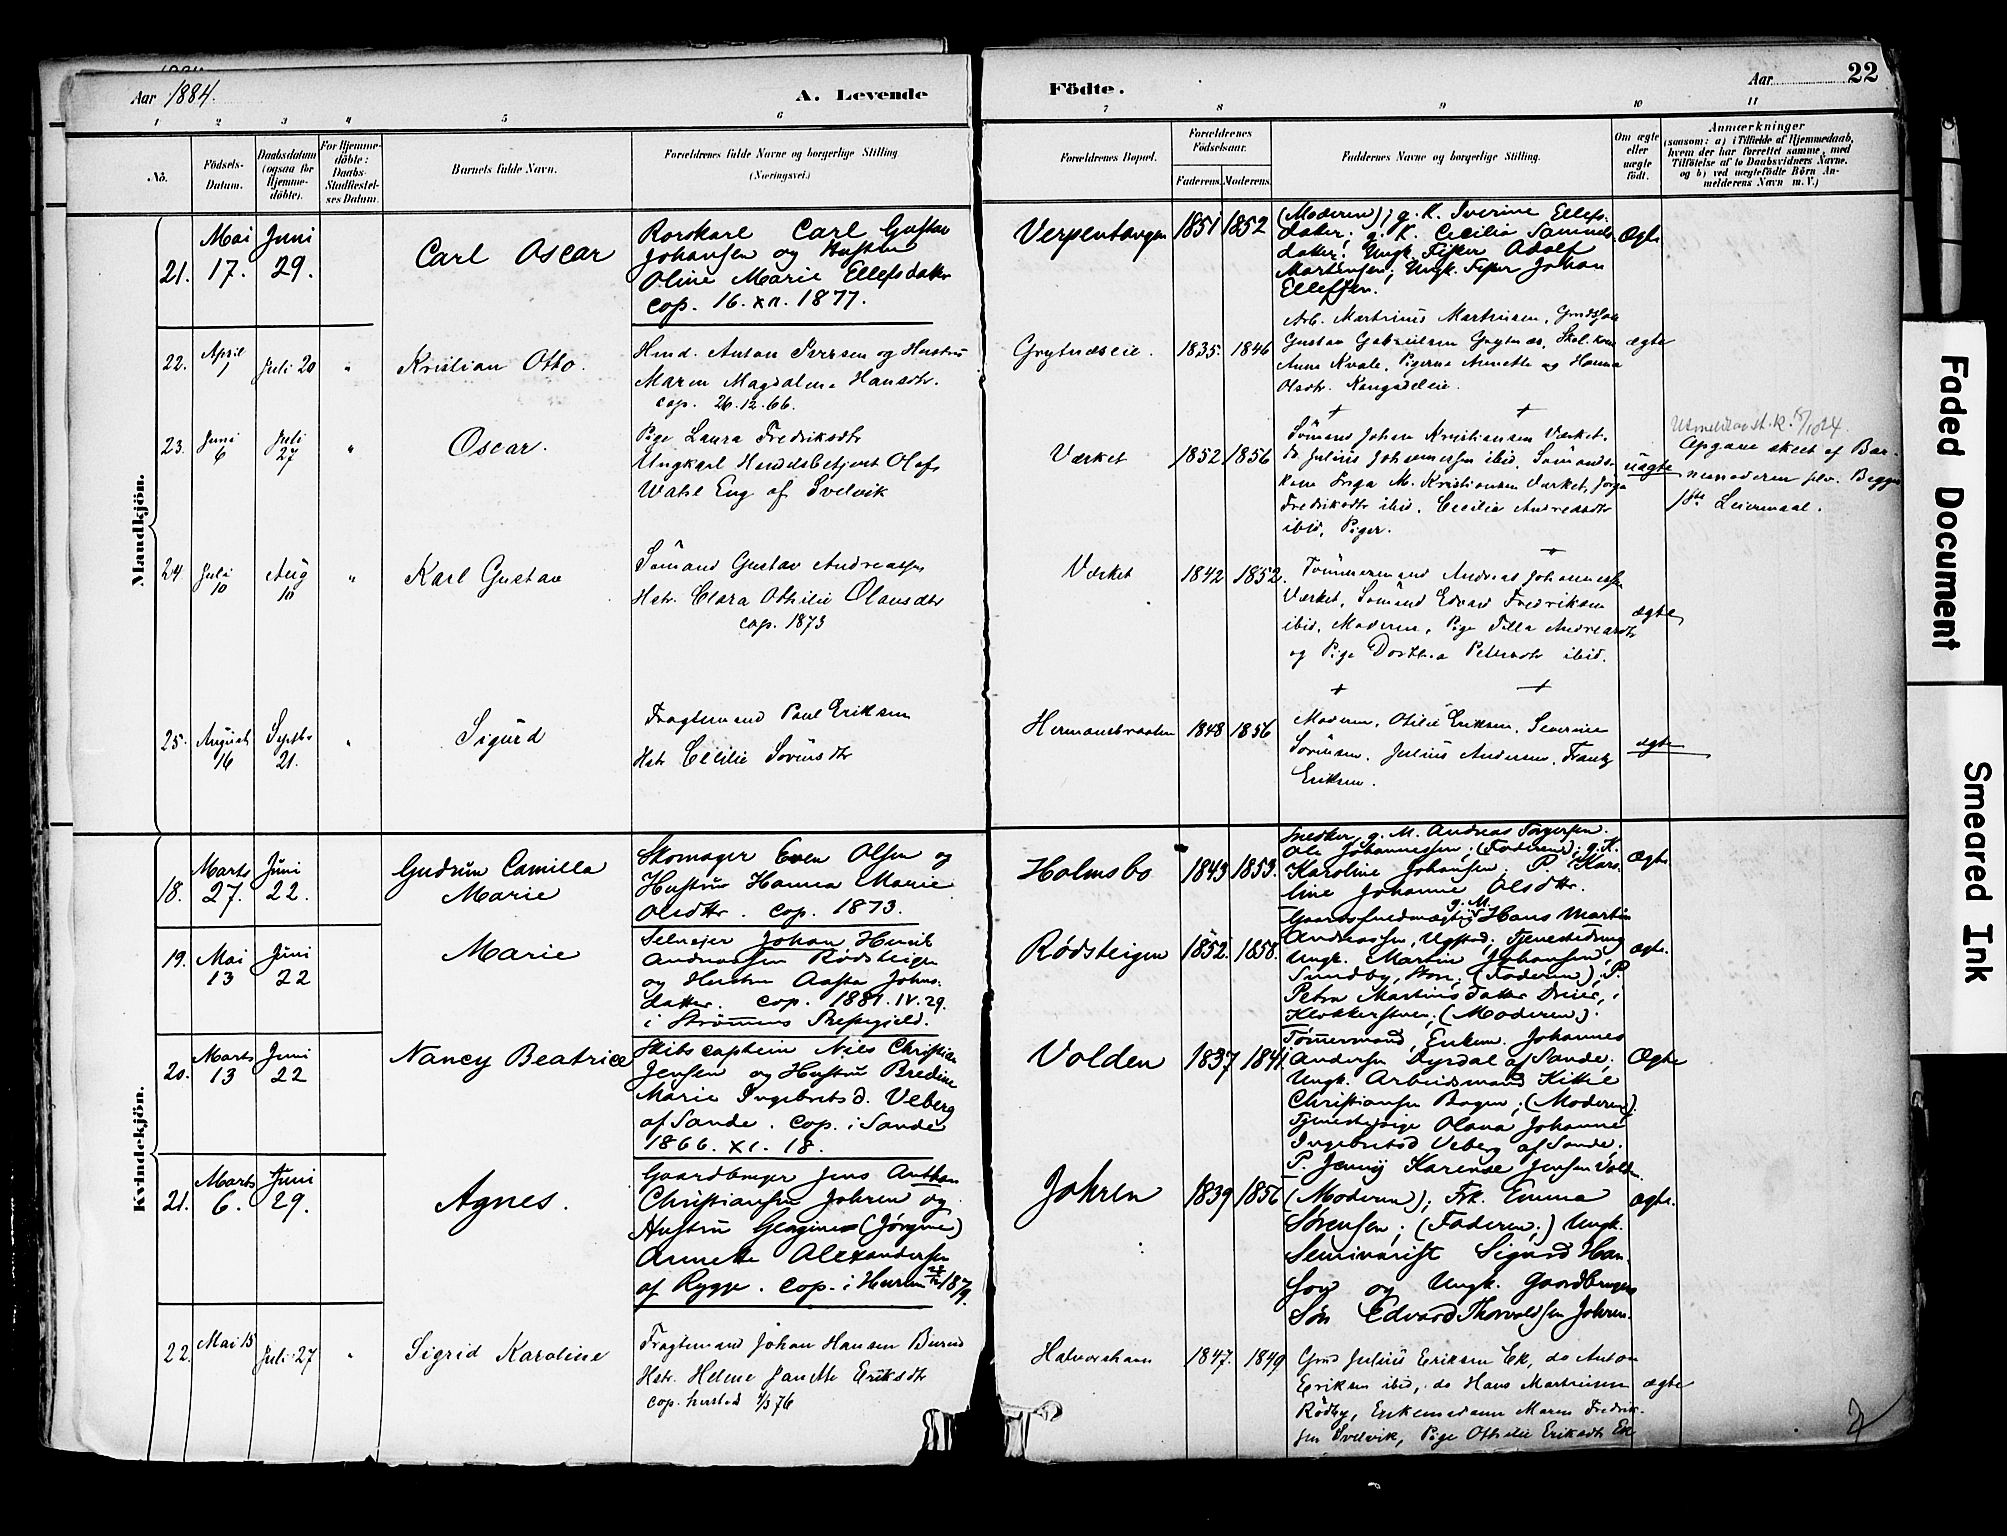 Aar 1884.
A. Levende
Födte.
Aar
22
1 2 3 4 5 6 7 8 9 10 11
No.
Födsels-
Datum.
Daabsdatum
(ogsaa for
Hjemme-
döbte).
For Hjemme-
döbte:
Daabs-
Stadfæstel-
ses Datum.
Barnets fulde Navn.
Forældrenes fulde Navne og borgerlige Stilling
(Næringsvei.)
Forældrenes Bopæl.
Forældrenes
Födselsaar.
Faderens.
Moderens.
Faddernes Navne og borgerlige Stilling.
Om ægte
eller
uægte
födt.
Anmærkninger
(saasom: a) i Tilfælde af Hjemmedaab,
hvem der har forrettet samme, med
Tilföielse af to Daabsvidners Navne.
og b) ved uægtefödte Börn An-
melderens Navn m. V.)
Mandkjön.
21. Mai 17. Juni 29.
Carl Oscar
Rorskarl Carl Gustav
Johansen og Hustru
Oline Marie Ellefsdatter
cop. 16. XII. 1877.
Verpentangen 1851 1852
(Moderen); g. K. Iverine Ellefs-
datter; g. K. Cecilia Samuels-
datter; Ungk. Fisker Adolf
Martinsen; Ungk. Fisker Johan
Ellefsen.
Ægte
22. April 1 Juli 20 "
Kristian Otto.
Hmd. Anton Iversen og Hustru
Maren Magdalene Hansdtr.
cop. 26.12.66.
Grytnæseie. 1835. 1846
Arb. Martinus Martinsen, Grdsfolk
Gustav Gabrielsen Grytnæs, Skol.kone
Anne Kvale, Pigerne Annette og Hanna
Olsdtr.
ægte
23. Juni 6 Juli 27 "
Oscar.
Pige Laura Fredriksdtr
Ungkarl Handelsbetjent Olaf
Wahl Eng af Svelvik
Værket 1852 1856
Sömand Johan Kristiansen Værket.
do Julius Johannessen ibid. Sömands-
kone Inga M. Kristiansen Værket, Jörg.
Fredriksdtr ibid, Cecilie Andreasdtr
ibid, Piger.
uægte
Opgave skeet af Bar-
nemoderen selv. Begges
1ste Leiermaal.
24 Juli 10 Aug 10 "
Karl Gustav
Sömand Gustav Andreassen
Hstr. Clara Othilie Olausdtr
cop. 1873
Værket 1842 1852.
Tömmermand Andreas Johannessen
Værket, Sömand Edvard Fredriksen
ibid, Moderen, Pige Tilla Andreasdtr
og Pige Dorthea Petersdtr ibid.
ægte
25. August 16 Septbr 21. "
Sigurd
Fragtemand Paul Eriksen
Hstr Cecilie Sörensdtr
Hermansbraaten 1848 1856
Moderen, Otilie Eriksen, Severine
Sörensen, Julius Andersen, Frantz
Eriksen.
ægte
Kvindekjön.
18. Marts 27. Juni 22.
Gudrun Camilla
Marie
Skomager Even Olsen og
Hustru Hanna Marie
Olsdtr. cop. 1873.
Holmsbo 1843 1853.
Snedker, g. M. Andreas Torgersen.
Ole Johannessen; (Faderen); g. K.
Karoline Johansen, P. Karo-
line Johanne Olsdtr.
Ægte
19. Mai 13 Juni 22
Marie
Selveier Johan Henrik
Andreassen Rødsteigen
og Hustru Aasta Johns-
datter. cop. 1881. IV. 29.
i Strømmens Præstegjeld.
Rødsteigen 1852. 1858.
Gaardsfuldmægtig g. M. Hans Martin
Andreassen, Ugstad; Tjenestedreng
Ungk. Martin Johansen,
Sundby, Hon, (Faderen), P.
Petra Martinsdatter Dreier, i
Klokkerstuen; (Moderen).
Ægte.
20. Marts 13 Juni 22
Nancy Beatrice
Skibscaptein Niels Christian
Jensen og Hustru Bredine
Marie Ingebretsd. Veberg
af Sande. cop. i Sande
1866. XI. 18.
Volden 1837 1841.
Tømmermand, Enkem. Johannes
Andersen Dyrdal af Sande;
Ungk. Arbeidsmand Kittil
Christiansen Bogen; (Moderen).
Tjenestepige Olava Johanne
Ingebretsd Veberg af Sande;
P. Jenny Karense Jensen Volden.
Ægte
21. Marts 6. Juni 29.
Agnes.
Gaardbruger Jens Anthon
Christiansen Johren og
Hustru Georgine (Jørgine)
Annette Alexandersen
af Rygge. cop. i Hurum 1879.
Johren 1839 1856
(Moderen); Frk. Emma
Sørensen; (Faderen;) Ungk.
Seminarist Sigurd Han-
son og Ungk. Gaardbrugers
Søn Edvard Thorvaldsen Johren.
Ægte.
22. Mai 15 Juli 27 "
Sigrid Karoline
Fragtemand Johan Hansen
Hstr. Helene Janette Eriksdtr
cop. 4/3 76
Halvorshavn 1847. 1849
Grmd Julius Eriksen Ek, do Anton
Eriksen ibid, do Hans Martinsen
Rödby, Enkemadame Maren Fredrik-
sen Svelvik, Pige Othilie Eriksdtr Ek
ægte
Faded Document
Smeared Ink